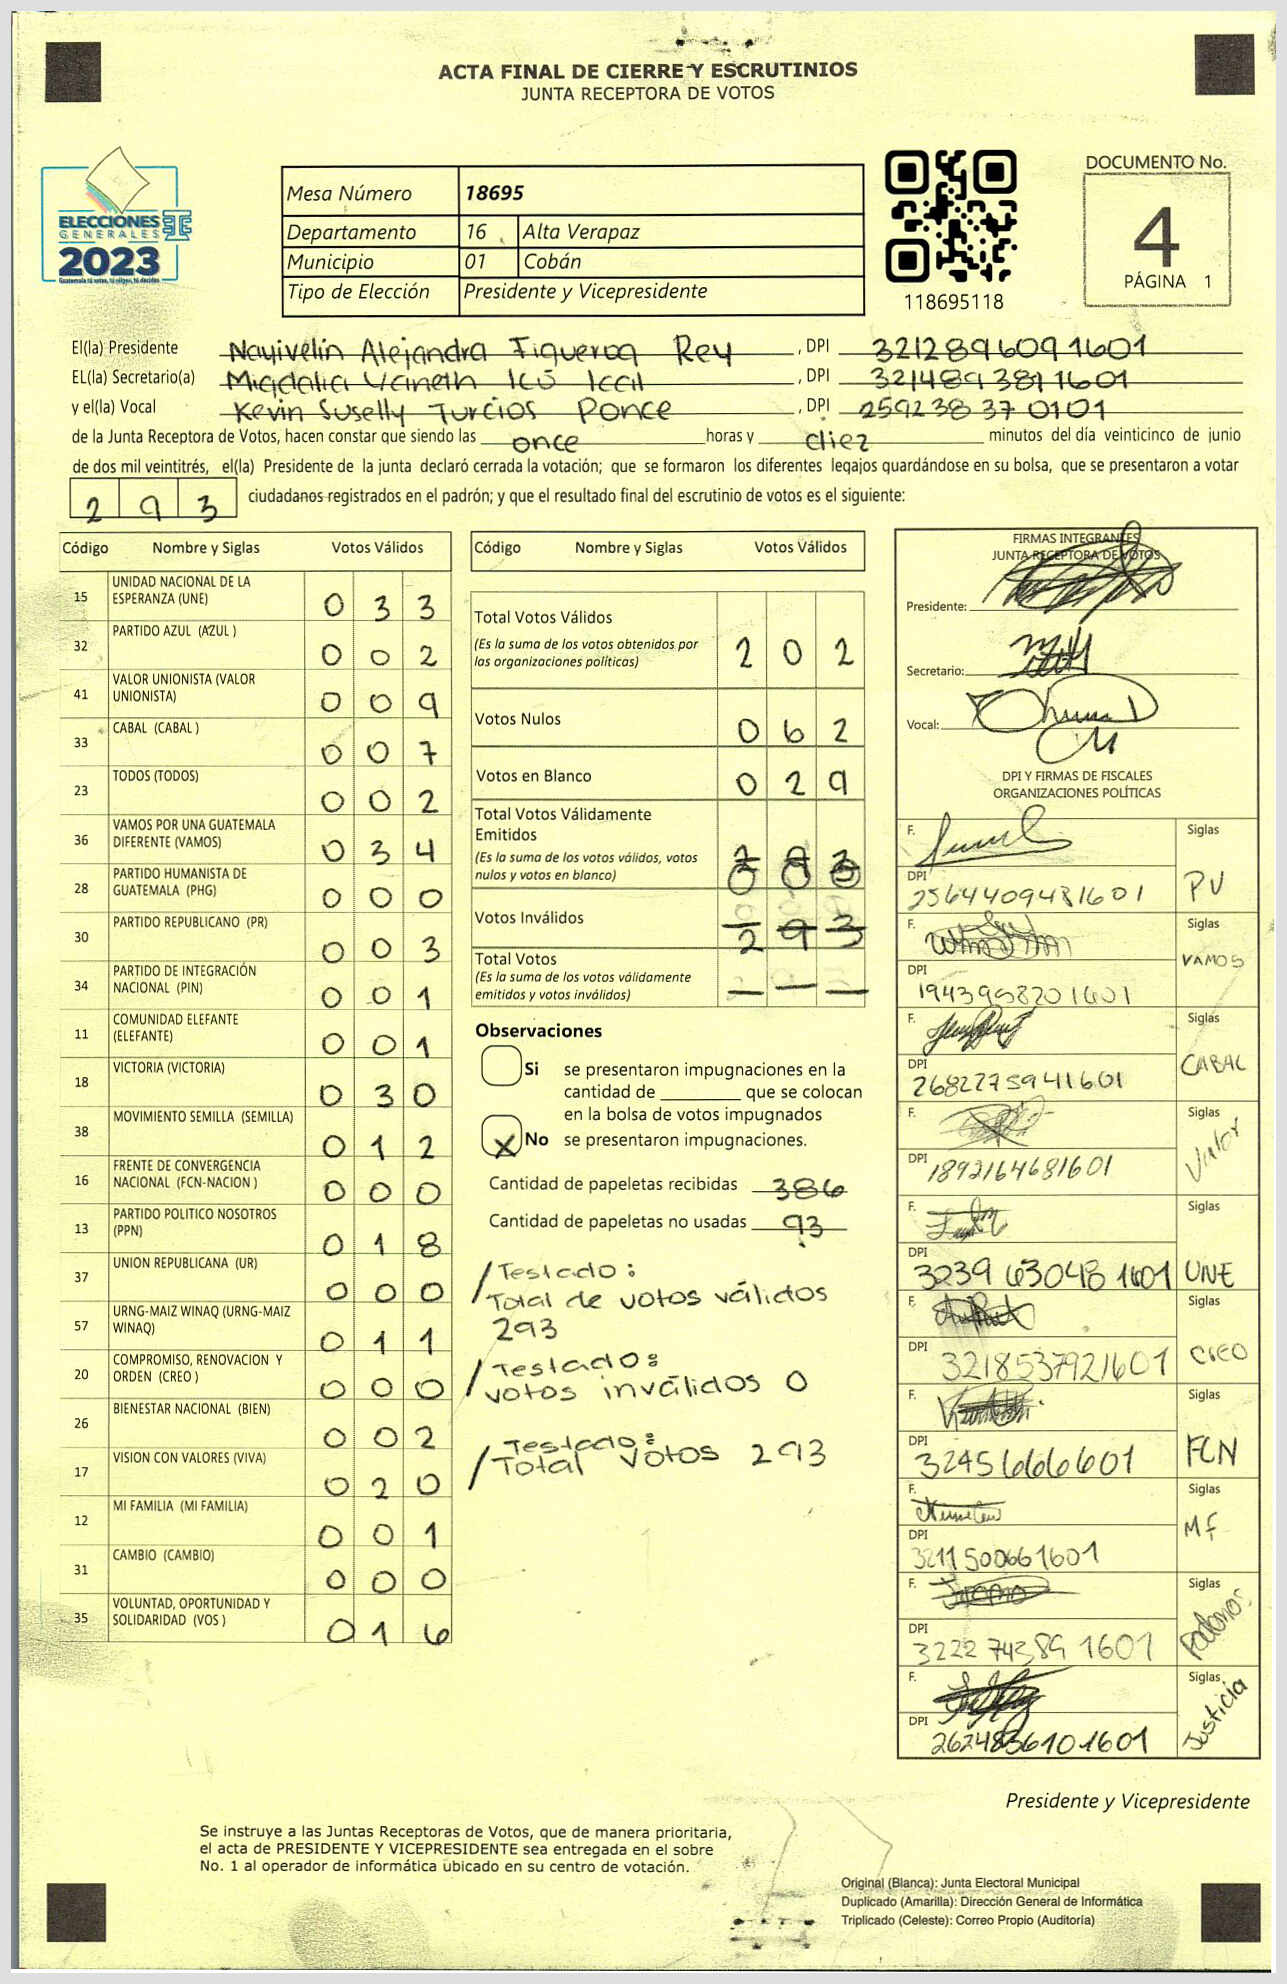 ACTA FINAL DE CIERRE Y ESCRUTINIOS
JUNTA RECEPTORA DE VOTOS
ELECCIONES
GENERALES
2023
Guatemala tú votas, tú eliges, tú decides
Mesa Número 18695
Departamento 16 Alta Verapaz
Municipio 01 Cobán
Tipo de Elección Presidente y Vicepresidente
118695118
DOCUMENTO No.
4
PÁGINA 1
El(la) Presidente Nayivelin Alejandra Figueroa Rey , DPI 3212896091601
EL(la) Secretario(a) Migdalia Yaneth Icó Ical , DPI 3214893811601
y el(la) Vocal Kevin Suselly Turcios Ponce , DPI 259238370101
de la Junta Receptora de Votos, hacen constar que siendo las once horas y diez minutos del día veinticinco de junio
de dos mil veintitrés, el(la) Presidente de la junta declaró cerrada la votación; que se formaron los diferentes legajos guardándose en su bolsa, que se presentaron a votar
293 ciudadanos registrados en el padrón; y que el resultado final del escrutinio de votos es el siguiente:
Código Nombre y Siglas Votos Válidos
15 UNIDAD NACIONAL DE LA
ESPERANZA (UNE) 033
32 PARTIDO AZUL (AZUL ) 002
41 VALOR UNIONISTA (VALOR
UNIONISTA) 009
33 CABAL (CABAL ) 007
23 TODOS (TODOS) 002
36 VAMOS POR UNA GUATEMALA
DIFERENTE (VAMOS) 034
28 PARTIDO HUMANISTA DE
GUATEMALA (PHG) 000
30 PARTIDO REPUBLICANO (PR) 003
34 PARTIDO DE INTEGRACIÓN
NACIONAL (PIN) 001
11 COMUNIDAD ELEFANTE
(ELEFANTE) 001
18 VICTORIA (VICTORIA) 030
38 MOVIMIENTO SEMILLA (SEMILLA) 012
16 FRENTE DE CONVERGENCIA
NACIONAL (FCN-NACION ) 000
13 PARTIDO POLITICO NOSOTROS
(PPN) 018
37 UNION REPUBLICANA (UR) 000
57 URNG-MAIZ WINAQ (URNG-MAIZ
WINAQ) 011
20 COMPROMISO, RENOVACION Y
ORDEN (CREO ) 000
26 BIENESTAR NACIONAL (BIEN) 002
17 VISION CON VALORES (VIVA) 020
12 MI FAMILIA (MI FAMILIA) 001
31 CAMBIO (CAMBIO) 000
35 VOLUNTAD, OPORTUNIDAD Y
SOLIDARIDAD (VOS ) 016
Código Nombre y Siglas Votos Válidos
Total Votos Válidos
(Es la suma de los votos obtenidos por
las organizaciones políticas) 202
Votos Nulos 062
Votos en Blanco 029
Total Votos Válidamente
Emitidos
(Es la suma de los votos válidos, votos
nulos y votos en blanco)
Votos Inválidos 293
Total Votos
(Es la suma de los votos válidamente
emitidos y votos inválidos)
Observaciones
Si se presentaron impugnaciones en la
cantidad de ________ que se colocan
en la bolsa de votos impugnados
X No se presentaron impugnaciones.
Cantidad de papeletas recibidas 386
Cantidad de papeletas no usadas 93
/ Testado:
Total de votos válidos
293
/ Testado:
votos inválidos 0
/ Testado:
Total votos 293
FIRMAS INTEGRANTES
JUNTA RECEPTORA DE VOTOS
Presidente:
Secretario:
Vocal:
DPI Y FIRMAS DE FISCALES
ORGANIZACIONES POLÍTICAS
F. Siglas
DPI 2564409481601 PV
F. Siglas
DPI VAMOS
F. Siglas
DPI 2682275941601 CABAL
F. Siglas
DPI 1892164681601 Valor
F. Siglas
DPI 3239630481601 UNE
F. Siglas
DPI 3218537921601 CREO
F. Siglas
DPI 32456666601 FCN
F. Siglas
DPI 3211500661601 MF
F. Siglas
DPI 3222743891601
F. Siglas
DPI Justicia
Presidente y Vicepresidente
Se instruye a las Juntas Receptoras de Votos, que de manera prioritaria,
el acta de PRESIDENTE Y VICEPRESIDENTE sea entregada en el sobre
No. 1 al operador de informática ubicado en su centro de votación.
Original (Blanca): Junta Electoral Municipal
Duplicado (Amarilla): Dirección General de Informática
Triplicado (Celeste): Correo Propio (Auditoría)